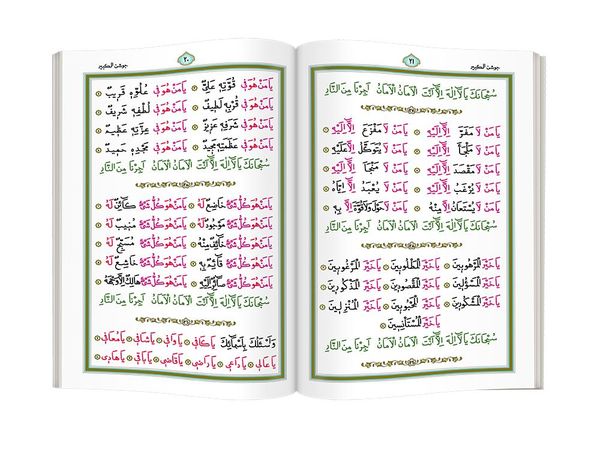 جوشن الكبير ٢٠
يَا مَنْ هُوَ فِي قُوَّتِهِ عَلِيٌّ يَا مَنْ هُوَ فِي عُلُوِّهِ قَرِيبٌ
يَا مَنْ هُوَ فِي قُرْبِهِ لَطِيفٌ يَا مَنْ هُوَ فِي لُطْفِهِ شَرِيفٌ
يَا مَنْ هُوَ فِي شَرَفِهِ عَزِيزٌ يَا مَنْ هُوَ فِي عِزَّتِهِ عَظِيمٌ
يَا مَنْ هُوَ فِي عَظَمَتِهِ مَجِيدٌ يَا مَنْ هُوَ فِي مَجْدِهِ حَمِيدٌ
سُبْحَانَكَ يَا لَا اِلٰهَ اِلَّا اَنْتَ الْاَمَانُ الْاَمَانُ اَجِرْنَا مِنَ النَّارِ
يَا مَنْ هُوَ كُلُّ شَيْءٍ خَاضِعٌ لَهُ يَا مَنْ هُوَ كُلُّ شَيْءٍ كَائِنٌ لَهُ
يَا مَنْ هُوَ كُلُّ شَيْءٍ مَوْجُودٌ لَهُ يَا مَنْ هُوَ كُلُّ شَيْءٍ مُنِيبٌ لَهُ
يَا مَنْ هُوَ كُلُّ شَيْءٍ خَائِفٌ مِنْهُ يَا مَنْ هُوَ كُلُّ شَيْءٍ مُسَبِّحٌ لَهُ
يَا مَنْ هُوَ كُلُّ شَيْءٍ قَائِمٌ بِهِ يَا مَنْ هُوَ كُلُّ شَيْءٍ خَاشِعٌ لَهُ
يَا مَنْ هُوَ كُلُّ شَيْءٍ صَائِرٌ اِلَيْهِ يَا مَنْ هُوَ كُلُّ شَيْءٍ هَالِكٌ اِلَّا وَجْهَهُ
سُبْحَانَكَ يَا لَا اِلٰهَ اِلَّا اَنْتَ الْاَمَانُ الْاَمَانُ اَجِرْنَا مِنَ النَّارِ
وَاَسْئَلُكَ بِاَسْمَائِكَ يَا كَافِي يَا وَافِي يَا شَافِي يَا مُعَافِي
يَا عَالِي يَا دَاعِي يَا رَاضِي يَا قَاضِي يَا بَاقِي يَا هَادِي
٢١ جوشن الكبير
سُبْحَانَكَ يَا لَا اِلٰهَ اِلَّا اَنْتَ الْاَمَانُ الْاَمَانُ اَجِرْنَا مِنَ النَّارِ
يَا مَنْ لَا مَفَرَّ اِلَّا اِلَيْهِ يَا مَنْ لَا مَفْزَعَ اِلَّا اِلَيْهِ
يَا مَنْ لَا مَلْجَأَ اِلَّا اِلَيْهِ يَا مَنْ لَا يُتَوَكَّلُ اِلَّا عَلَيْهِ
يَا مَنْ لَا مَقْصَدَ اِلَّا اِلَيْهِ يَا مَنْ لَا مَنْجَأَ اِلَّا اِلَيْهِ
يَا مَنْ لَا يُرْغَبُ اِلَّا اِلَيْهِ يَا مَنْ لَا يُعْبَدُ اِلَّا اِيَّاهُ
يَا مَنْ لَا يُسْتَعَانُ اِلَّا مِنْهُ يَا مَنْ لَا حَوْلَ وَلَا قُوَّةَ اِلَّا بِهِ
سُبْحَانَكَ يَا لَا اِلٰهَ اِلَّا اَنْتَ الْاَمَانُ الْاَمَانُ اَجِرْنَا مِنَ النَّارِ
يَا خَيْرَ الْمَرْهُوبِينَ يَا خَيْرَ الْمَطْلُوبِينَ يَا خَيْرَ الْمَرْغُوبِينَ
يَا خَيْرَ الْمَسْؤُلِينَ يَا خَيْرَ الْمَقْصُودِينَ يَا خَيْرَ الْمَذْكُورِينَ
يَا خَيْرَ الْمَشْكُورِينَ يَا خَيْرَ الْمَحْبُوبِينَ يَا خَيْرَ الْمُنْزِلِينَ
يَا خَيْرَ الْمُسْتَأْنِسِينَ
سُبْحَانَكَ يَا لَا اِلٰهَ اِلَّا اَنْتَ الْاَمَانُ الْاَمَانُ اَجِرْنَا مِنَ النَّارِ